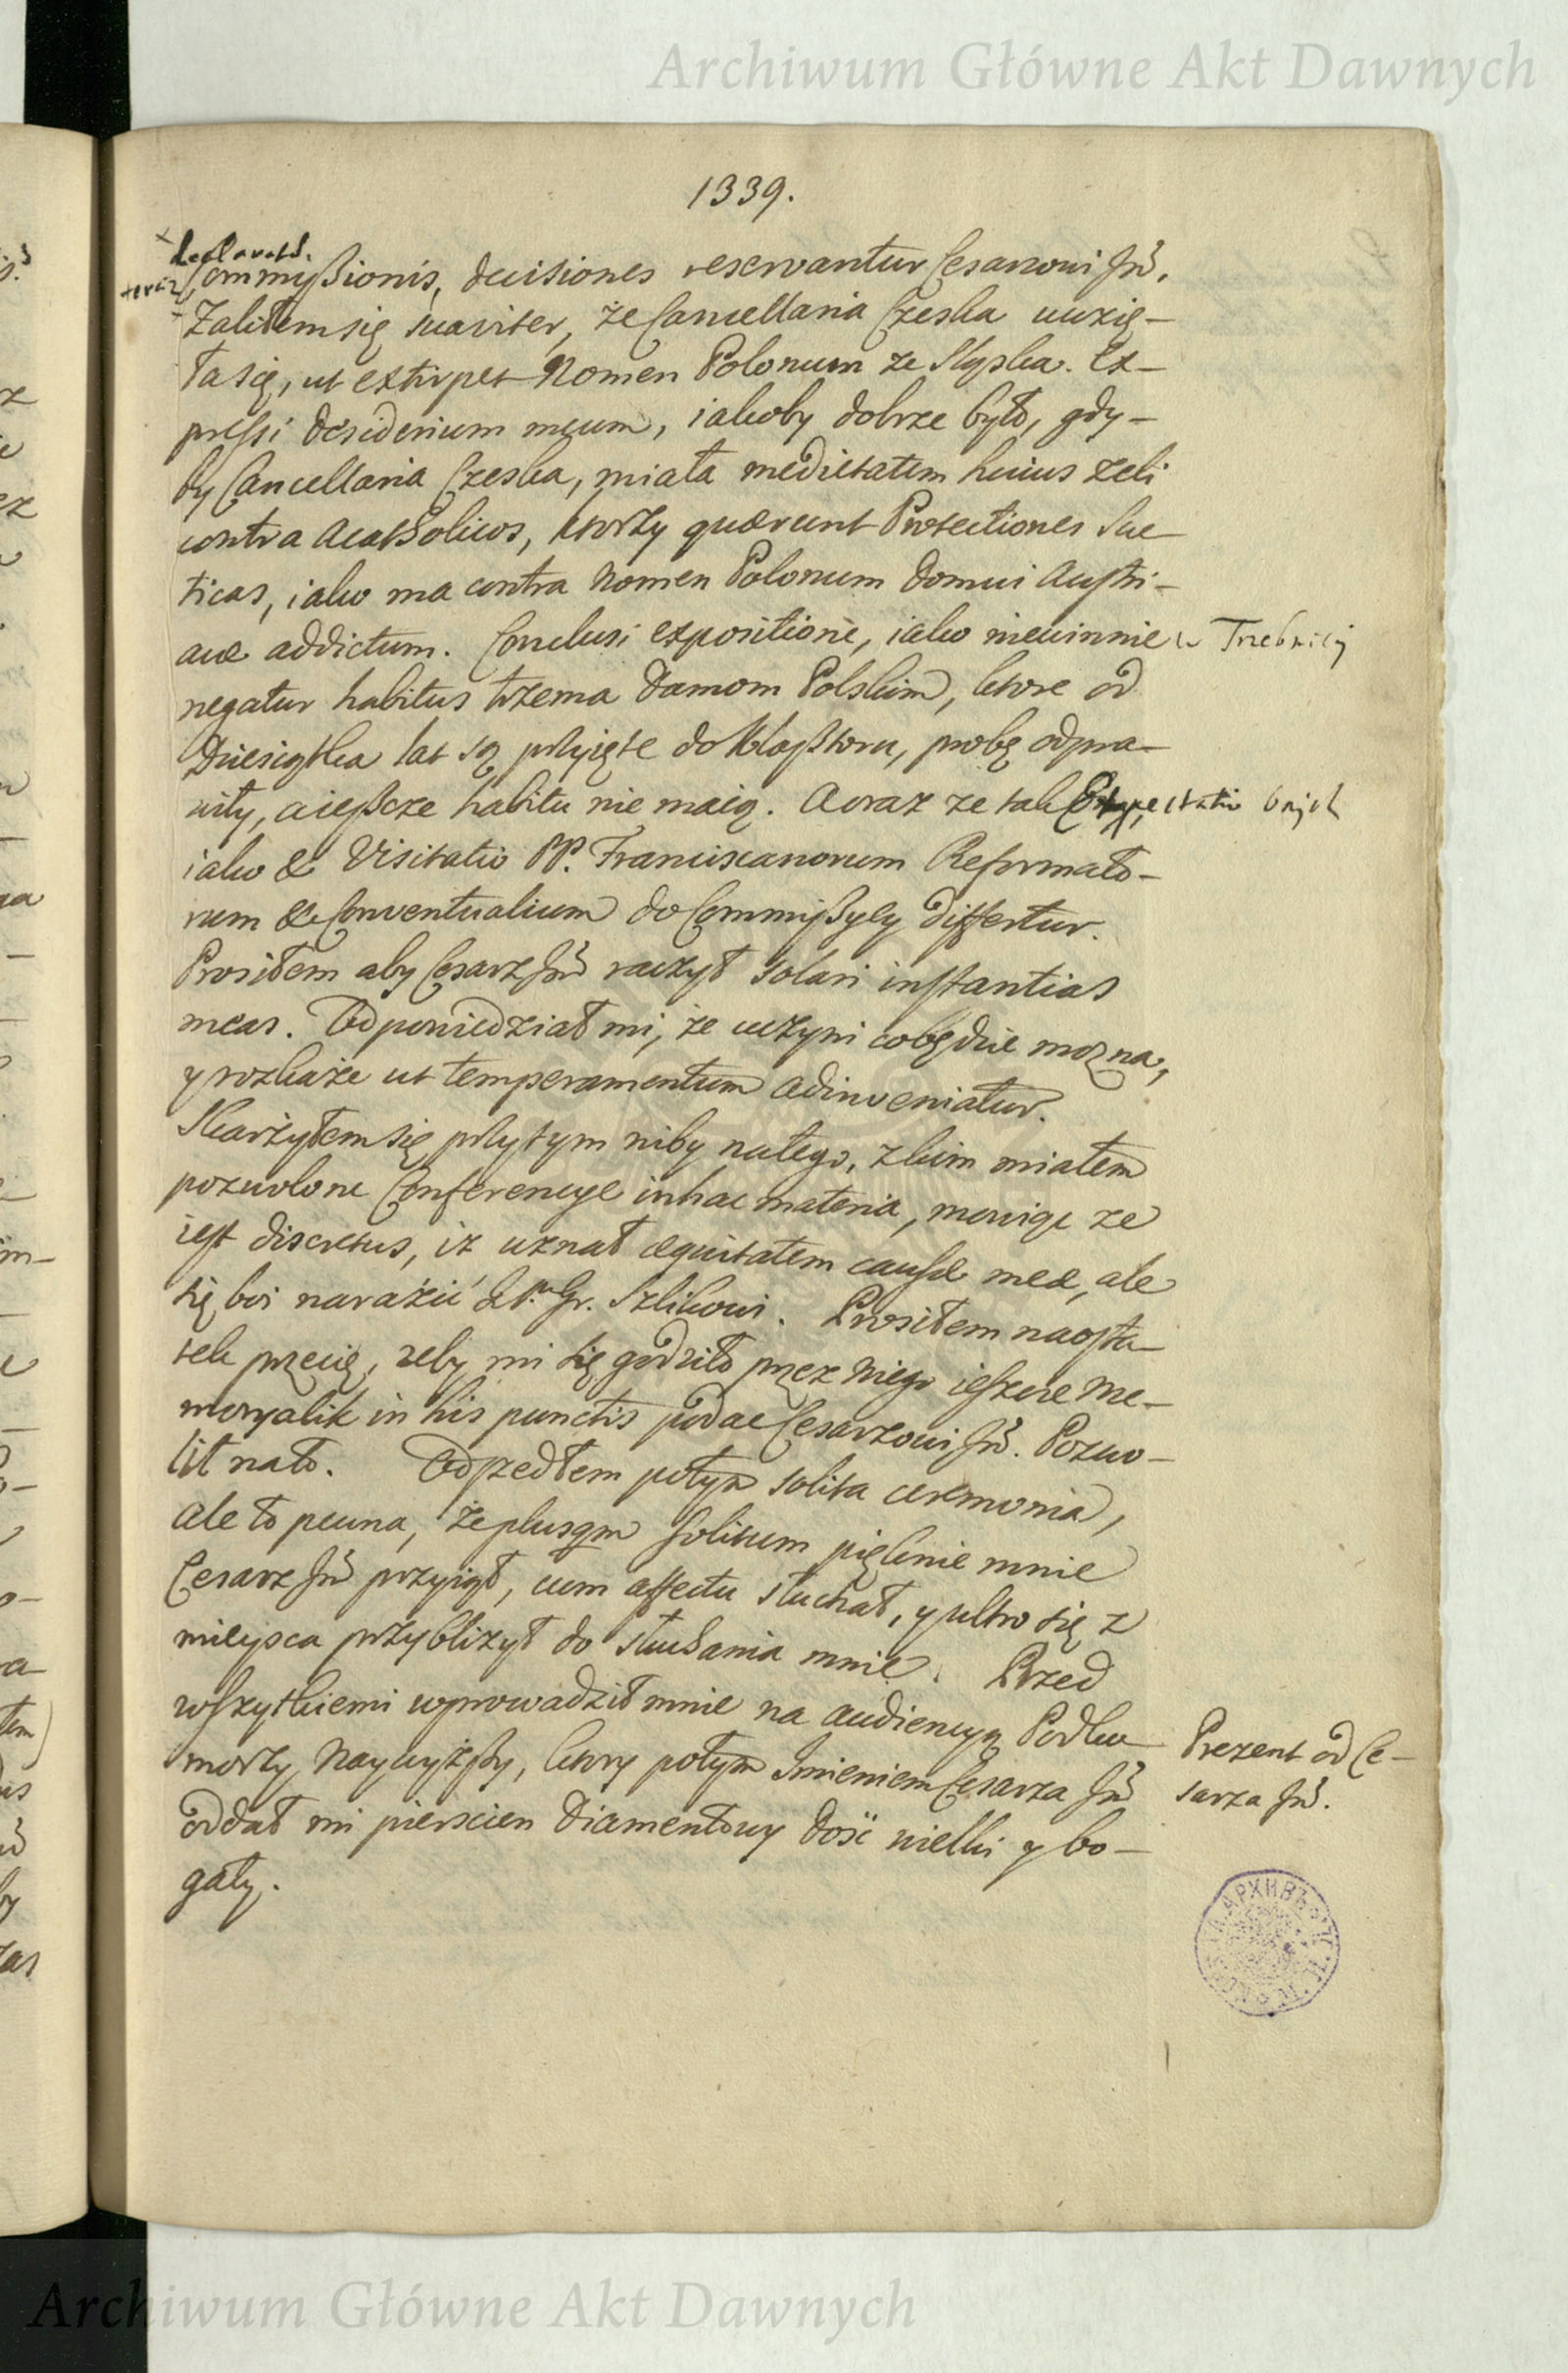 Archiwum Główne Akt Dawnych
1339.
declarats.
teraz Commyßionis, decisiones reservantur Cesarzowi Jm̃.
Zaliłem się suaviter, że Cancellaria Czeska uwzię-
ła się, ut extirpet Nomen Polonum ze Sląska. Ex-
pressi desiderium meum, iakoby dobrze było, gdy-
by Cancellaria Czeska, miała medietatem huius zeli
contra Acatholicos, ktorzy quærunt Protectiones Sue-
ticas, iako ma contra Nomen Polonum Domui Austri-
acæ addictum. Conclusi expositione, iako niewinnie w Trzebnicy
negatur habitus trzema Damom Polskim, ktore od
Dziesiątka lat są przyięte do Klaßtoru, probę odpra-
wiły, a ießcze habitu nie maią. A oraz ze tak Expectatio Onych
iako & Visitatio PP. Franciscanorum Reformato-
rum & Conventualium do Commißyey differtur.
Prosiłem aby Cesarz Jm̃ raczył solari instantias
meas. Odpowiedział mi, że uczyni co będzie mozna,
y rozkaże ut temperamentum adinveniatur.
Skarżyłem się przytym niby na tego, z kim miałem
pozwolone Conferencye in hac materia, mowiąc ze
iest discretus, iż uznał æquitatem causæ meæ, ale
się boi narazić Gr. Szlikowi. Prosiłem na osta-
tek przecię, zeby mi się godziło przez niego ieszcze Me-
moryalik in his punctis podac Cesarzowi Jm̃. Pozwo-
lił na to. Odszedłem potym solita ceremonia,
ale to pewna, że plusqm solitum pięknie mnie
Cesarz Jm̃ przyiął, cum affectu słuchał, y ultro się z
mieysca przybliżył do słuchania mnie. Przed
wszytkiemi wprowadził mnie na audiencyą Podko-
morzy Naywyższy, ktory potym Imieniem Cesarza Jm̃
oddał mi pierscien Diamentowy dość wielki y bo-
gaty.
Prezent od Ce-
sarza Jm̃.
Archiwum Główne Akt Dawnych